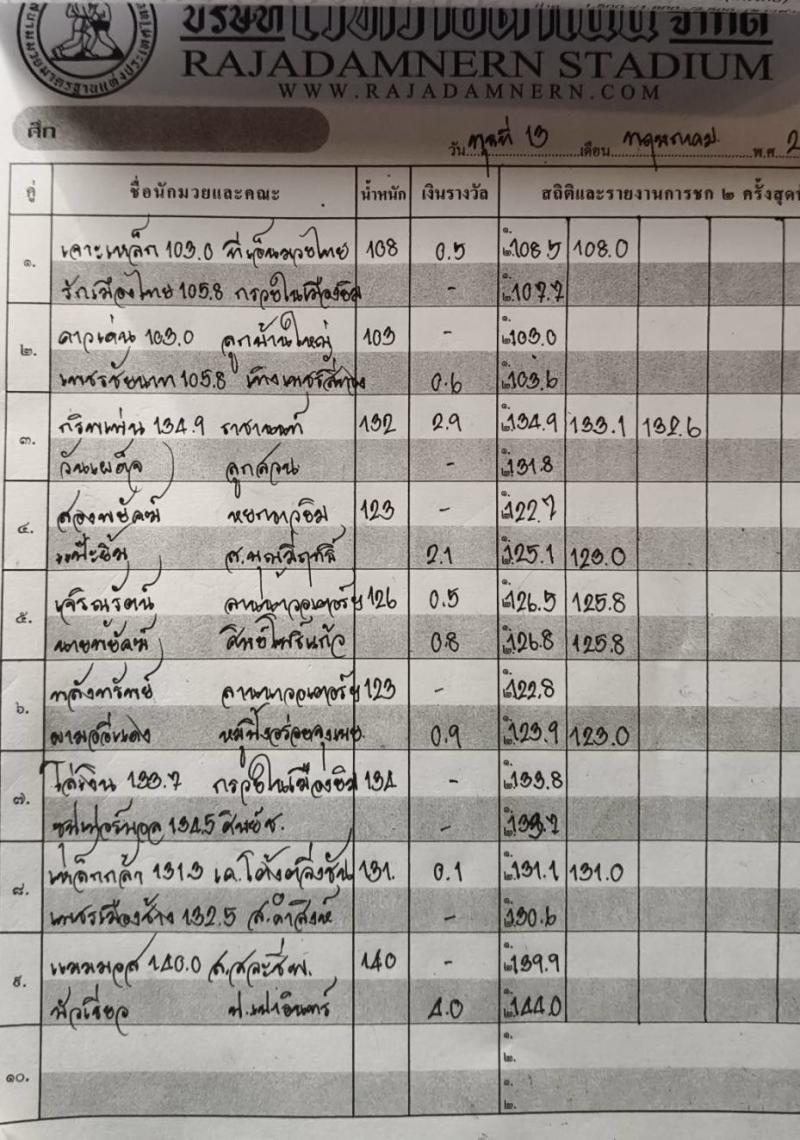 บริษัท เวทีราชดำเนิน จำกัด
RAJADAMNERN STADIUM
WWW.RAJADAMNERN.COM
ศึก
วัน ที่ 13 เดือน พฤษภาคม พ.ศ. 2
คู่ ชื่อนักมวยและคณะ น้ำหนัก เงินรางวัล สถิติและรายงานการชก ๒ ครั้งสุดท
๑. เจาะเหล็ก 103.0 108 0.5 ๑. ๒. 108.5 108.0
รักเมืองไทย 105.8 กรวยในเมืองยิม - ๑. ๒. 107.7
๒. ดาวเด่น 103.0 ลูกบ้านใหญ่ 103 - ๑. ๒. 103.0
เพชรชัยนาท 105.8 0.6 ๑. ๒. 103.6
๓. 134.9 ราชานนท์ 132 2.9 ๑. ๒. 134.9 133.1 132.6
วันเผด็จ ลูกสวน - ๑. ๒. 131.8
๔. สองพยัคฆ์ 123 - ๑. ๒. 122.7
แป๊ะยิ้ม 2.1 ๑. ๒. 125.1 123.0
๕. เจิรณรัตน์ ลานนาวอเตอร์ฯ 126 0.5 ๑. ๒. 126.5 125.8
นายพยัคฆ์ ศิษย์โพธิ์แก้ว 0.8 ๑. ๒. 126.8 125.8
๖. พลังทรัพย์ ลานนาวอเตอร์ฯ 123 - ๑. ๒. 122.8
0.9 ๑. ๒. 123.9 123.0
๗. โล่เงิน 133.7 กรวยในเมืองยิม 134 - ๑. ๒. 133.8
134.5 - ๑. ๒. 133.7
๘. เหล็กกล้า 131.3 131. 0.1 ๑. ๒. 131.1 131.0
เพชรเมืองช้าง 132.5 ส.คำสิงห์ - ๑. ๒. 130.6
๙. 140.0 140 - ๑. ๒. 139.9
บัวเขียว ป.เปาอินทร์ 4.0 ๑. ๒. 144.0
๑๐. ๑. ๒.
๑. ๒.